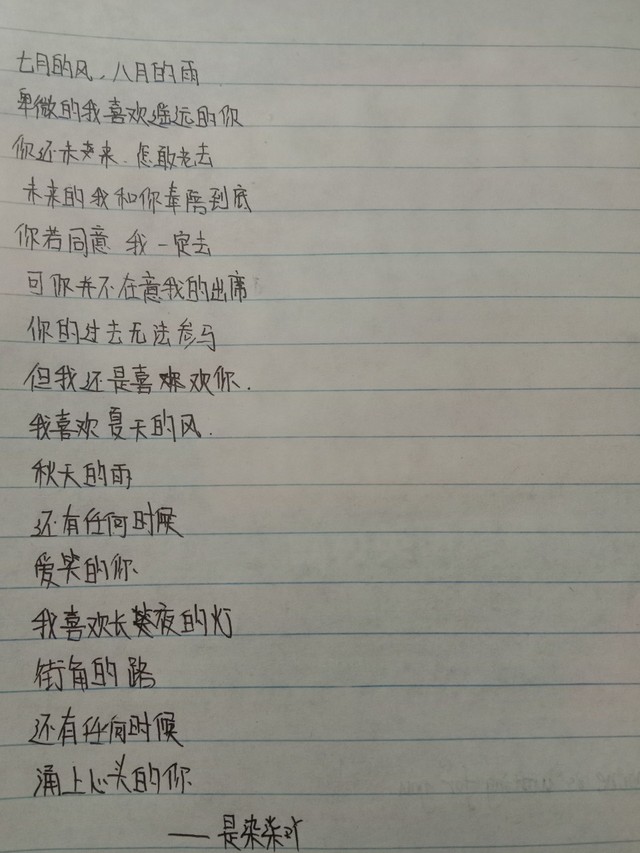 七月的风、八月的雨
卑微的我喜欢遥远的你
你还未来.怎敢老去
未来的我和你奉陪到底
你若同意 我一定去
可你并不在意我的出席
你的过去无法参与
但我还是喜欢你.
我喜欢夏天的风.
秋天的雨
还有任何时候
爱笑的你.
我喜欢长夜的灯
街角的路
还有任何时候
涌上心头的你
——是柒柒